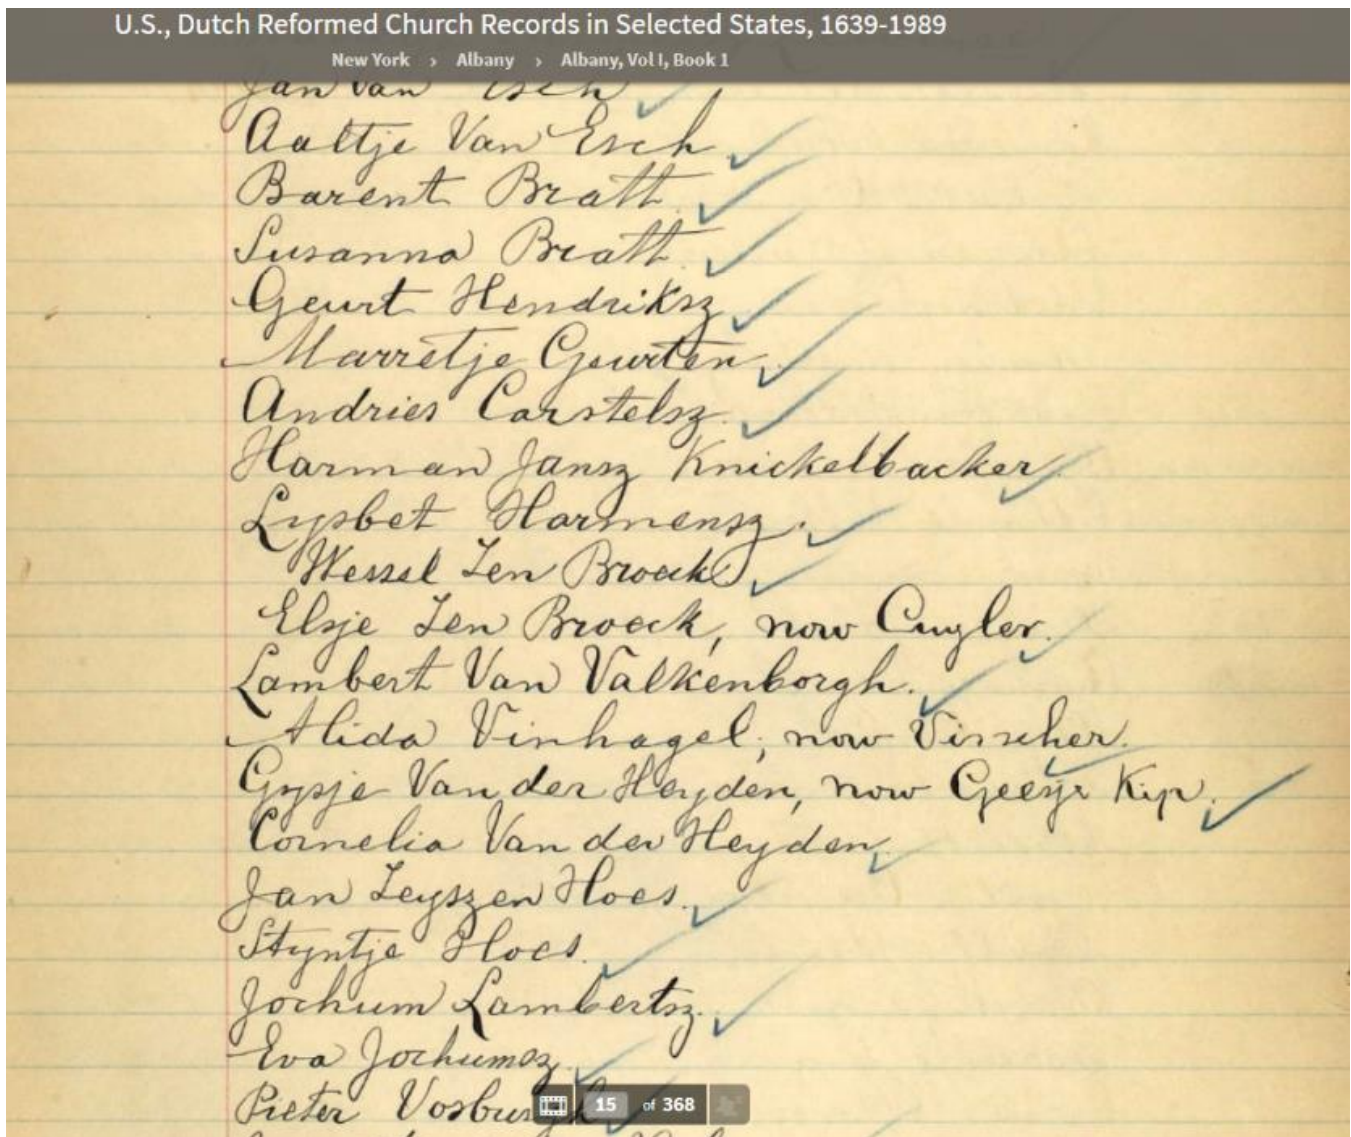 U.S., Dutch Reformed Church Records in Selected States, 1639-1989
New York › Albany › Albany, Vol I, Book 1
Jan Van Esch
Aaltje Van Esch
Barent Bratt.
Susanna Bratt.
Geurt Hendriksz
Marretje Geurten.
Andries Carstelsz.
Harman Jansz Knickelbacker.
Lysbet Harmensz.
Wessel Ten Broeck
Elsje Ten Broeck, now Cuyler.
Lambert Van Valkenborgh.
Alida Vinhagel, now Visscher.
Gysje Van der Heyden, now Kip.
Cornelia Van der Heyden.
Jan Teyszen Hoes.
Styntje Hoes.
Jochum Lambertsz.
Eva Jochumsz.
Pieter Vosburgh
15 of 368